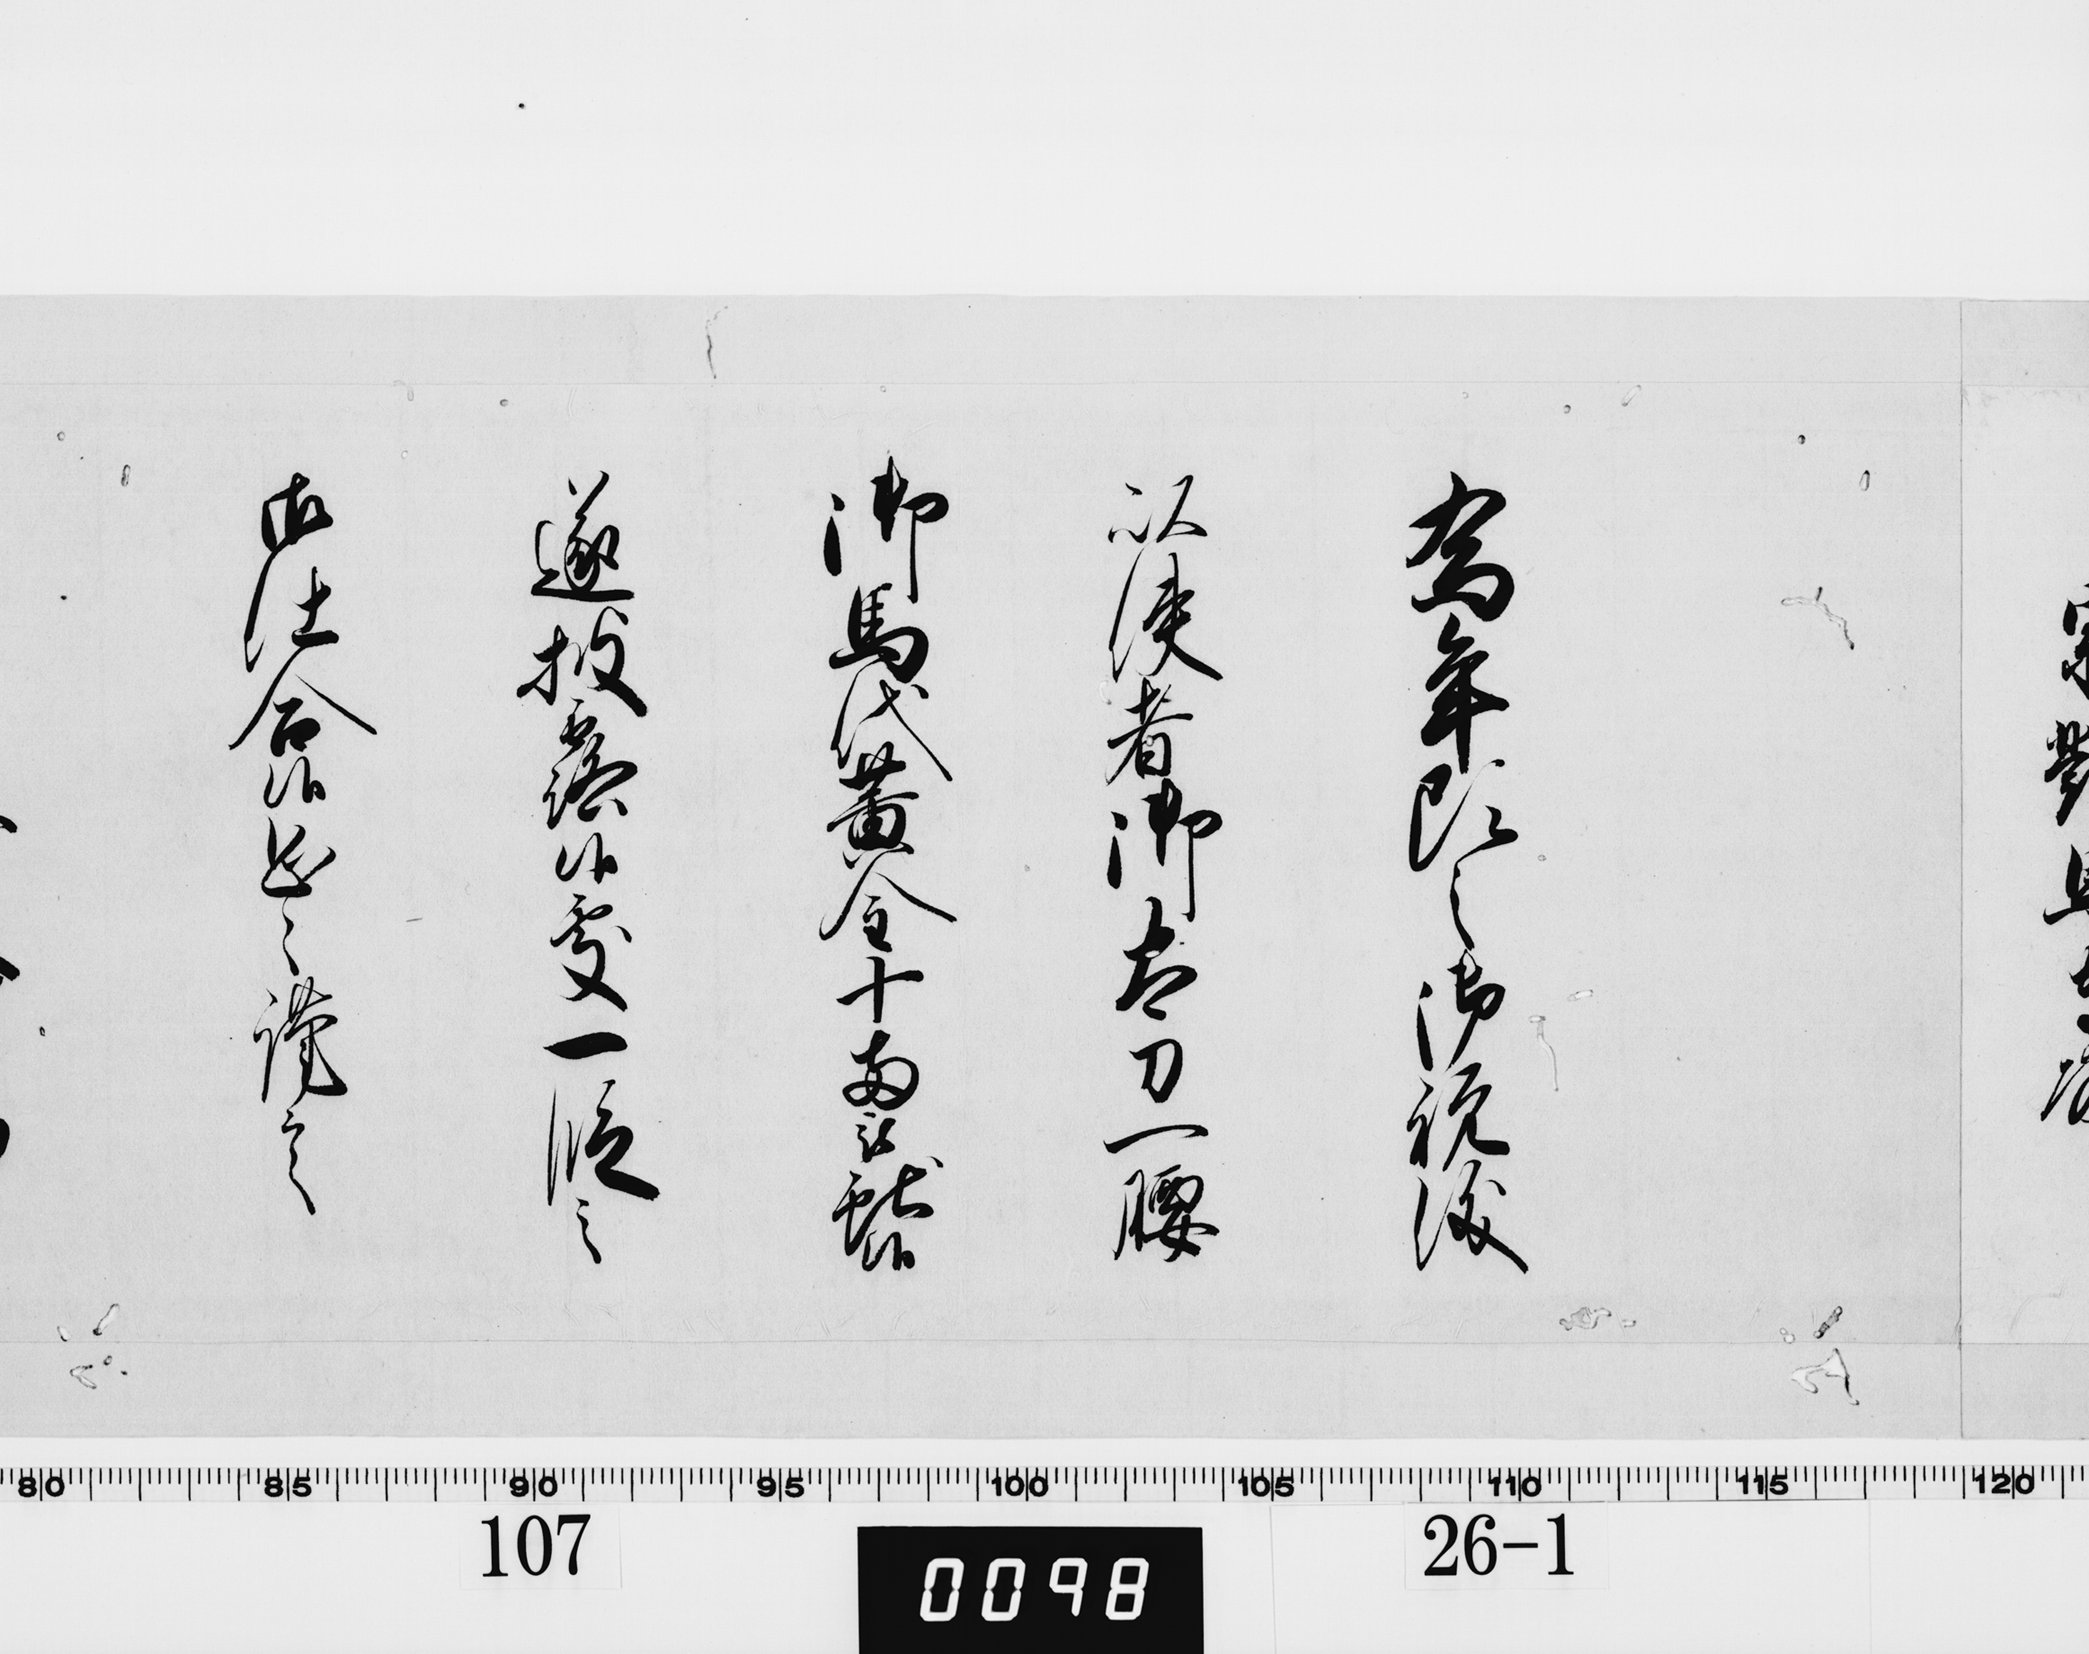 宗對馬守殿
為年頭之御祝儀
以使者御太刀一腰
御馬代黄金十両被献候
遂披露候處一段之
御仕合候恐々謹言
80 85 90 95 100 105 110 115 120
107 26-1
0098